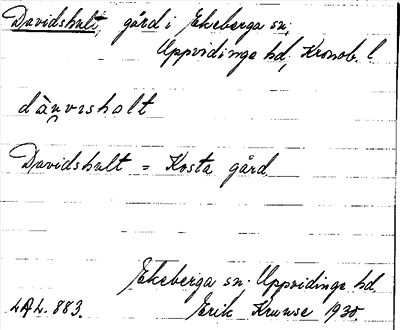 Davidshult, gård i Ekeberga sn;
Uppvidinge hd; Kronob. l
dàvvisholt
Davidshult = Kosta gård
Ekeberga sn. Uppvidinge hd.
LAL. 883. Erik Kruuse 1935.